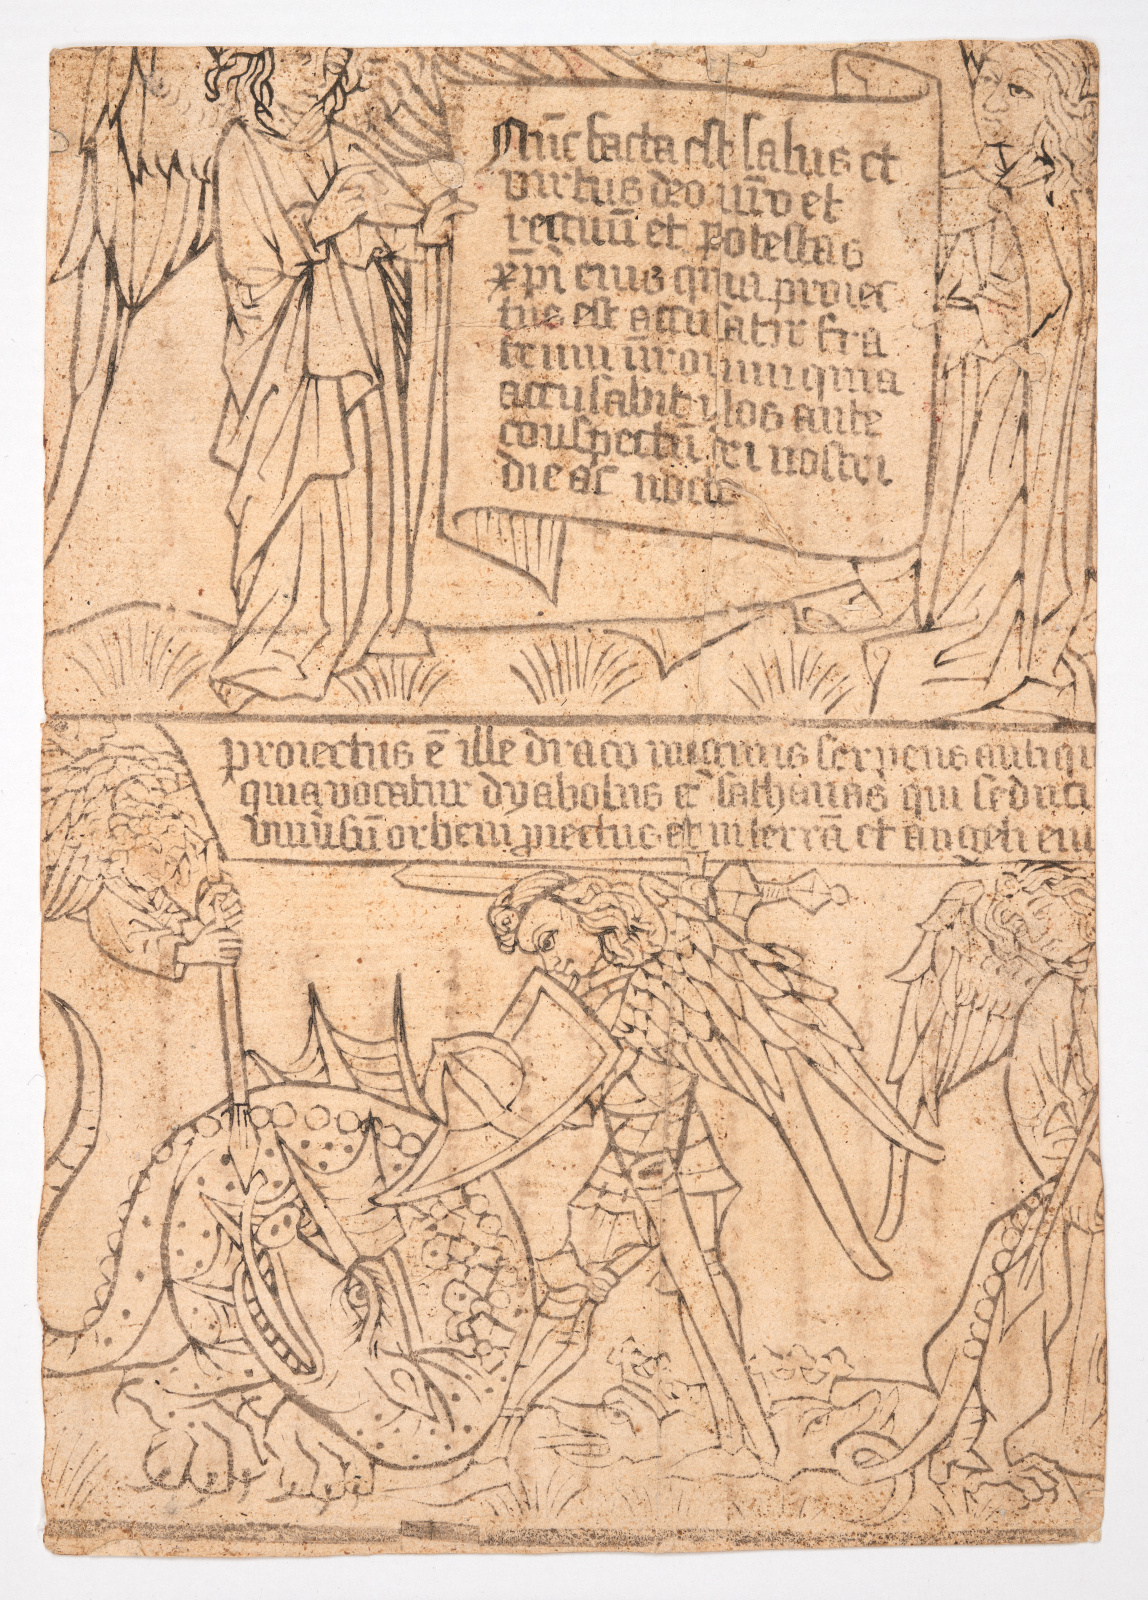 Nūc facta est salus et
virtus deo nr̄o et
regnū et potestas
xp̄i eius quia proiec
tus est accusator fra
trum nr̄orum quia
accusabit ylos ante
conspectū dei nostri
die ac nocte
proiectus ē ille draco magnus serpens antiqu
qui vocatur dyabolus et sathanas qui seduci
univ̄sū orbem ꝓiectus est in terrā et angeli eiu